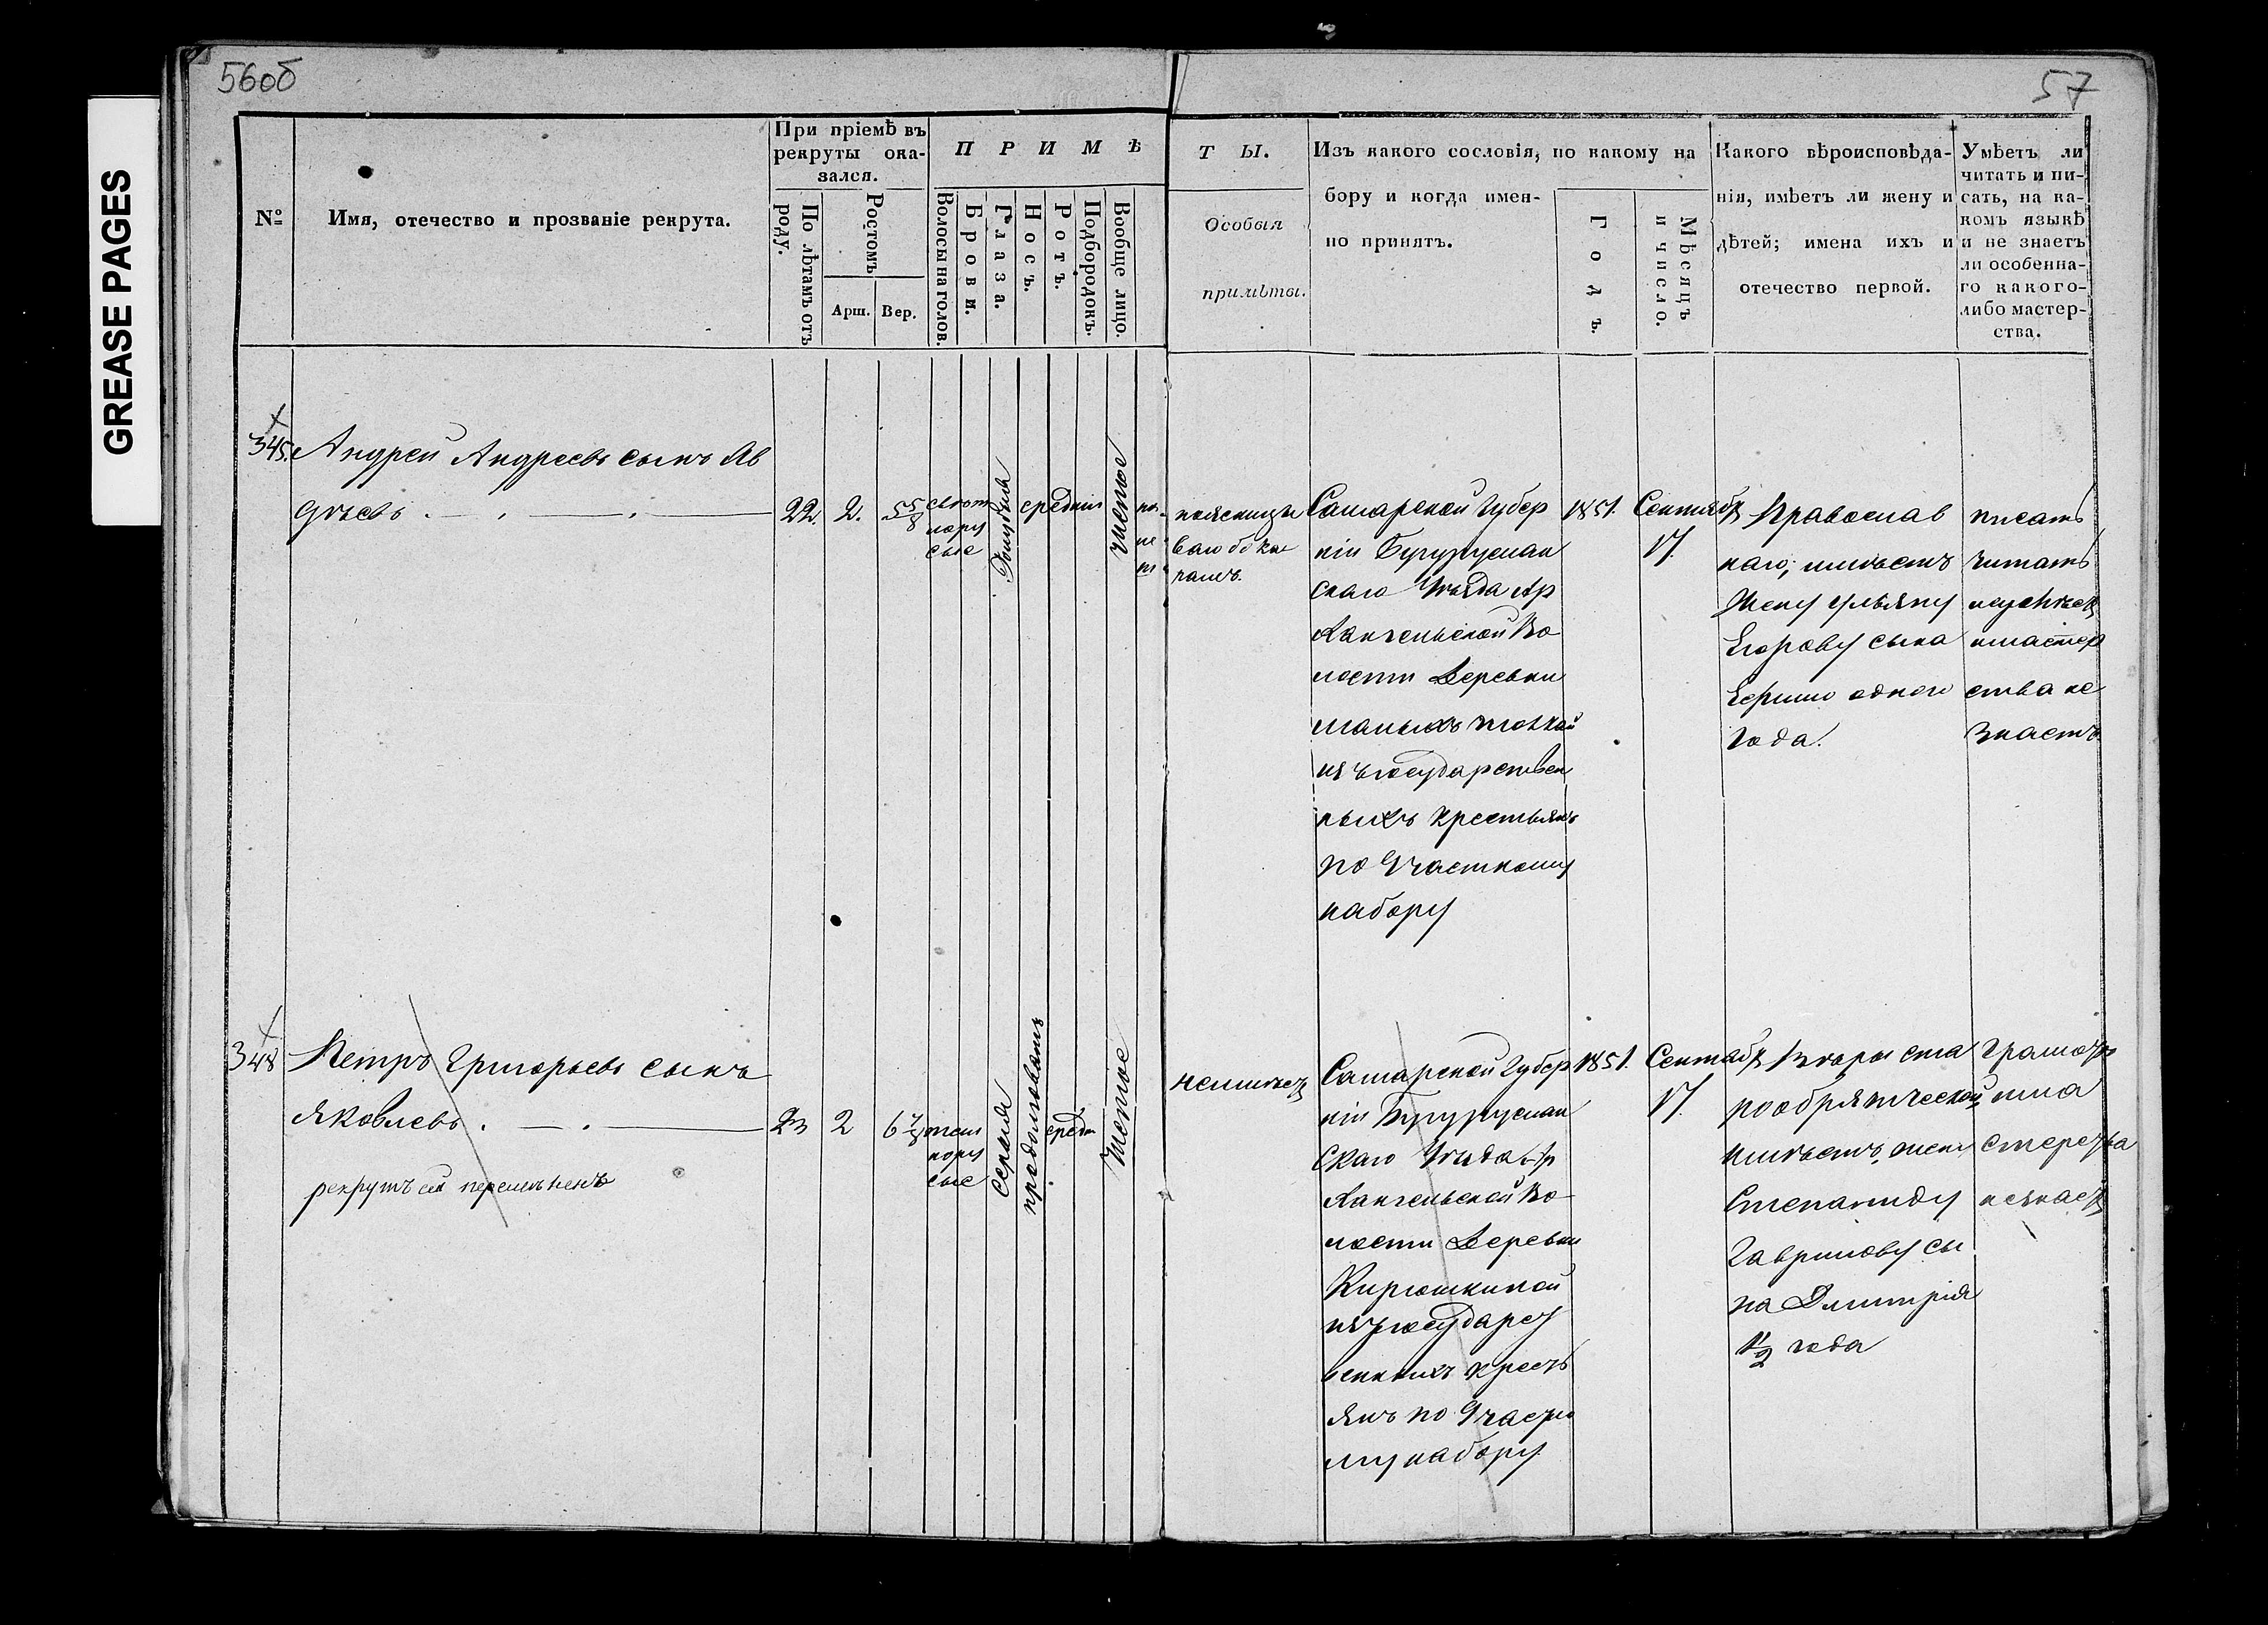 GREASE PAGES
56об
57
№
Имя, отечество и прозваніе рекрута.
При пріемѣ въ
рекруты ока-
зался.
По лѣтамъ отъ
роду.
Ростомъ
Арш.
Вер.
ПРИМѢ
Волосы на голов.
Брови.
Глаза.
Носъ.
Ротъ.
Подбородокъ.
Вообще лицо.
ТЫ.
Особыя
примѣты.
Изъ какого сословія, по какому на
бору и когда имен-
но принятъ.
Годъ.
Мѣсяцъ
и число.
Какого вѣроисповѣда-
нія, имѣетъ ли жену и
дѣтей; имена ихъ и
отечество первой.
Умѣетъ ли
читать и пи-
сать, на ка-
комъ языкѣ
и не знаетъ
ли особенна-
го какого-
либо мастер-
ства.
345.
Андрей Андреевъ сынъ Ав
дѣевъ
22.
2.
5 5/8
свѣт
лору
сые
Голубыя
средніи
чистое
поясницы
Самарской Губер
ніи Бугуруслан
скаго Уѣзда Ар
хангельской Во
лости Деревни
изъ государствен
ныхъ крестьянъ
по Участкому
набору
1851.
Сентябр
17.
Православ
наго, имѣетъ
Жену Ульяну
Егорову сына
одного
года.
писать
читать
мастер
ства не
знаетъ
348
Петръ Григорьевъ сынъ
Яковлевъ.
рекрутъ сей перемѣненъ
23
2
6 7/8
тем
нору
сые
Серыя
продолговатъ
средн
Чистое
неимѣет
Самарской Губер
ніи Бугуруслан
скаго Уѣзда Ар
хангельской Во
лости Деревни
Кирюшкиной
изъ государст
венныхъ кресть
янъ по Участко
му набору
1851.
Сентябр
17.
Вѣры ста
рообрятческой
имѣетъ жену
Степаниду
Гаврилову сы
на Дмитрія
1/2 года
Грамоте
и ма
стерства
незнает